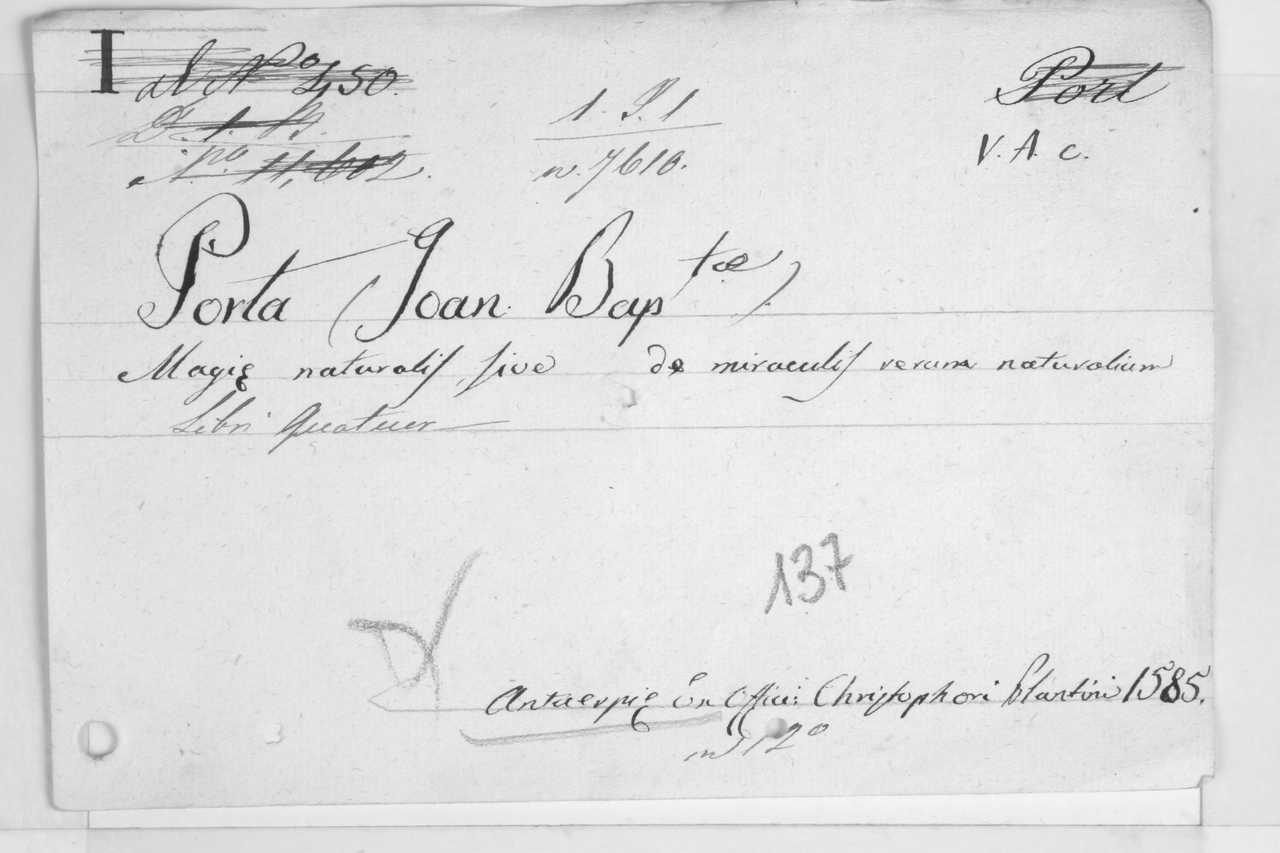 I ab Nº 450.
D. 1. B.
Nº 11,602.
1. P. 1
n. 7610.
Port
V. A. c.
Porta (Joan. Bap^tæ)
Magię naturalis, sive de miraculis rerum naturalium
Libri Quatuor
137
Antwerpię Ex Offici: Christophori Plantini 1585.
in 12º